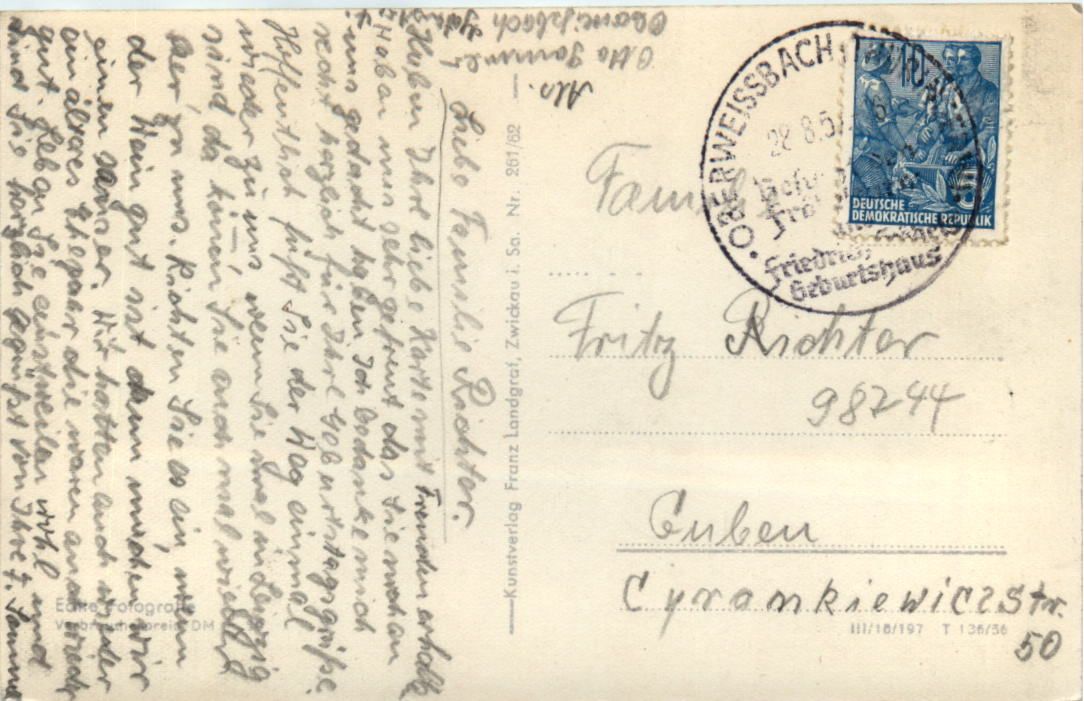 Abs.
Otto
Oberweißbach
Liebe Familie Richter.
Haben Ihre liebe Karte mit Freuden erhalten
Haben uns sehr gefreut das Sie noch an
uns gedacht haben Ich bedanke mich
recht herzlich für Ihre Geburtstagsgrüße.
Hoffentlich füst Sie der Weg einmal
wieder zu uns wenn Sie mal in Leipzig
sind da können Sie auch mal wieder
her zu uns. Richten Sie es ein, wenn
der Wein gut ist dann machen wir
einen Wir hatten auch wieder
ein älteres Ehepaar die waren auch recht
gut. Leben Sie einstweilen wohl und
sind Sie herzlich gegrüßt von Ihre F.
Echte Fotografie
Verbraucherpreis DM
Kunstverlag Franz Landgraf, Zwickau i. Sa. Nr. 261/62
OBERWEISSBACH
28.8.57
Friedrich
Geburtshaus
DEUTSCHE
DEMOKRATISCHE REPUBLIK
Fritz Richter
98744
Guben
CyrankiewiczStr.
50
III/18/197 T 136/56